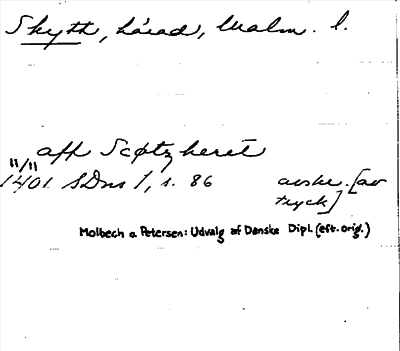 Skytts, härad, Malm. l.
aff Scøtzheret
11/11
1401 SDns 1, s. 86 avskr. [av
tryck]
Molbech o. Petersen: Udvalg af Danske Dipl. (eft. orig.)